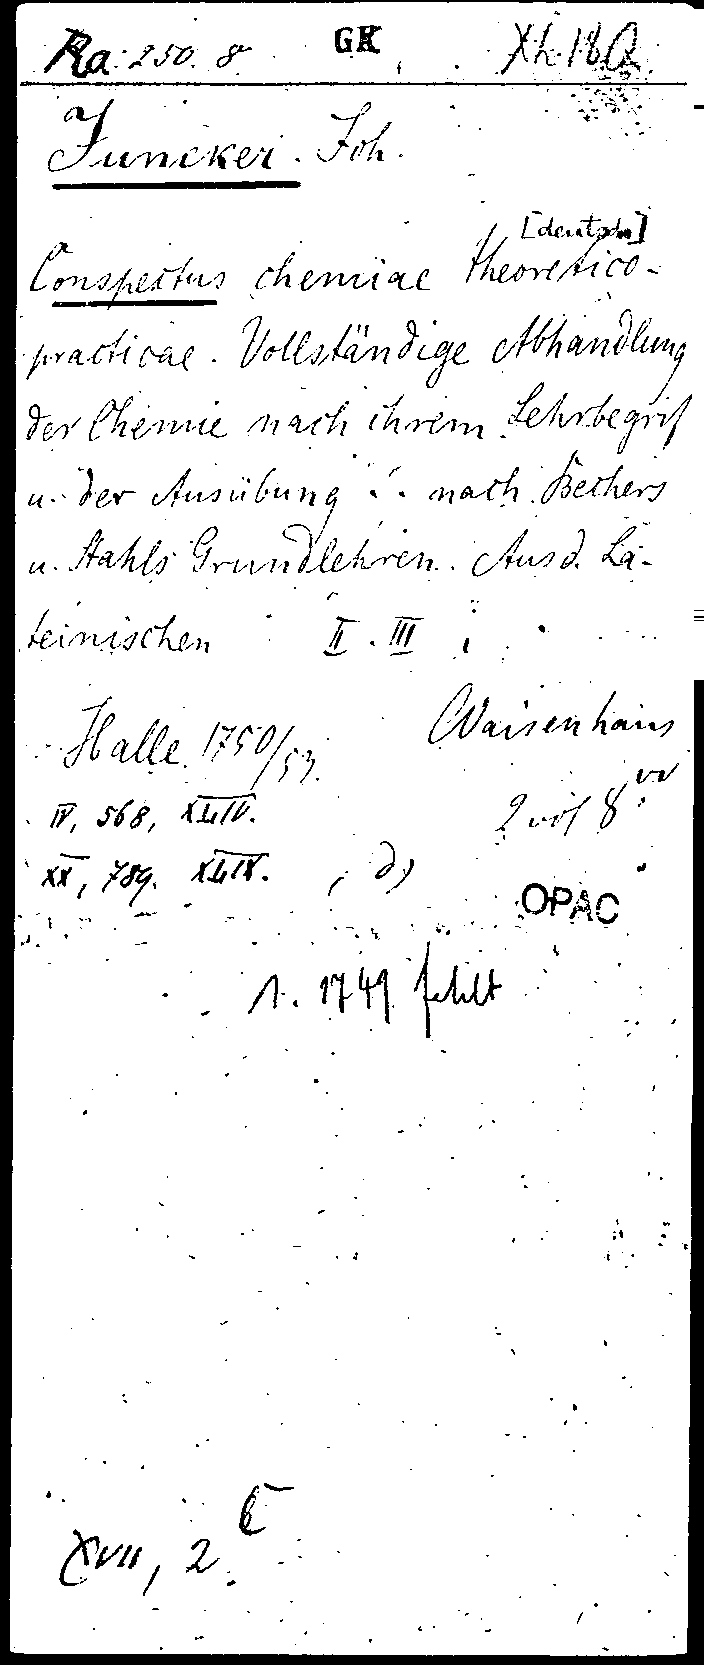 Ra 250. 8 GK Xh. 18 Q
Juncker. Joh.
[deutsch]
Conspectus chemiae theoretico-
practicae. Vollständige Abhandlung
der Chemie nach ihrem Lehrbegrif
u. der Ausübung ... nach Bechers
u. Stahls Grundlehren. Aus d. La-
teinischen II. III
Halle. 1750/53. Waisenhaus
IV, 568, XLIV. 2 vol 8°.
XX, 789. XLIX.
OPAC
1. 1749 fehlt
XVII, 2